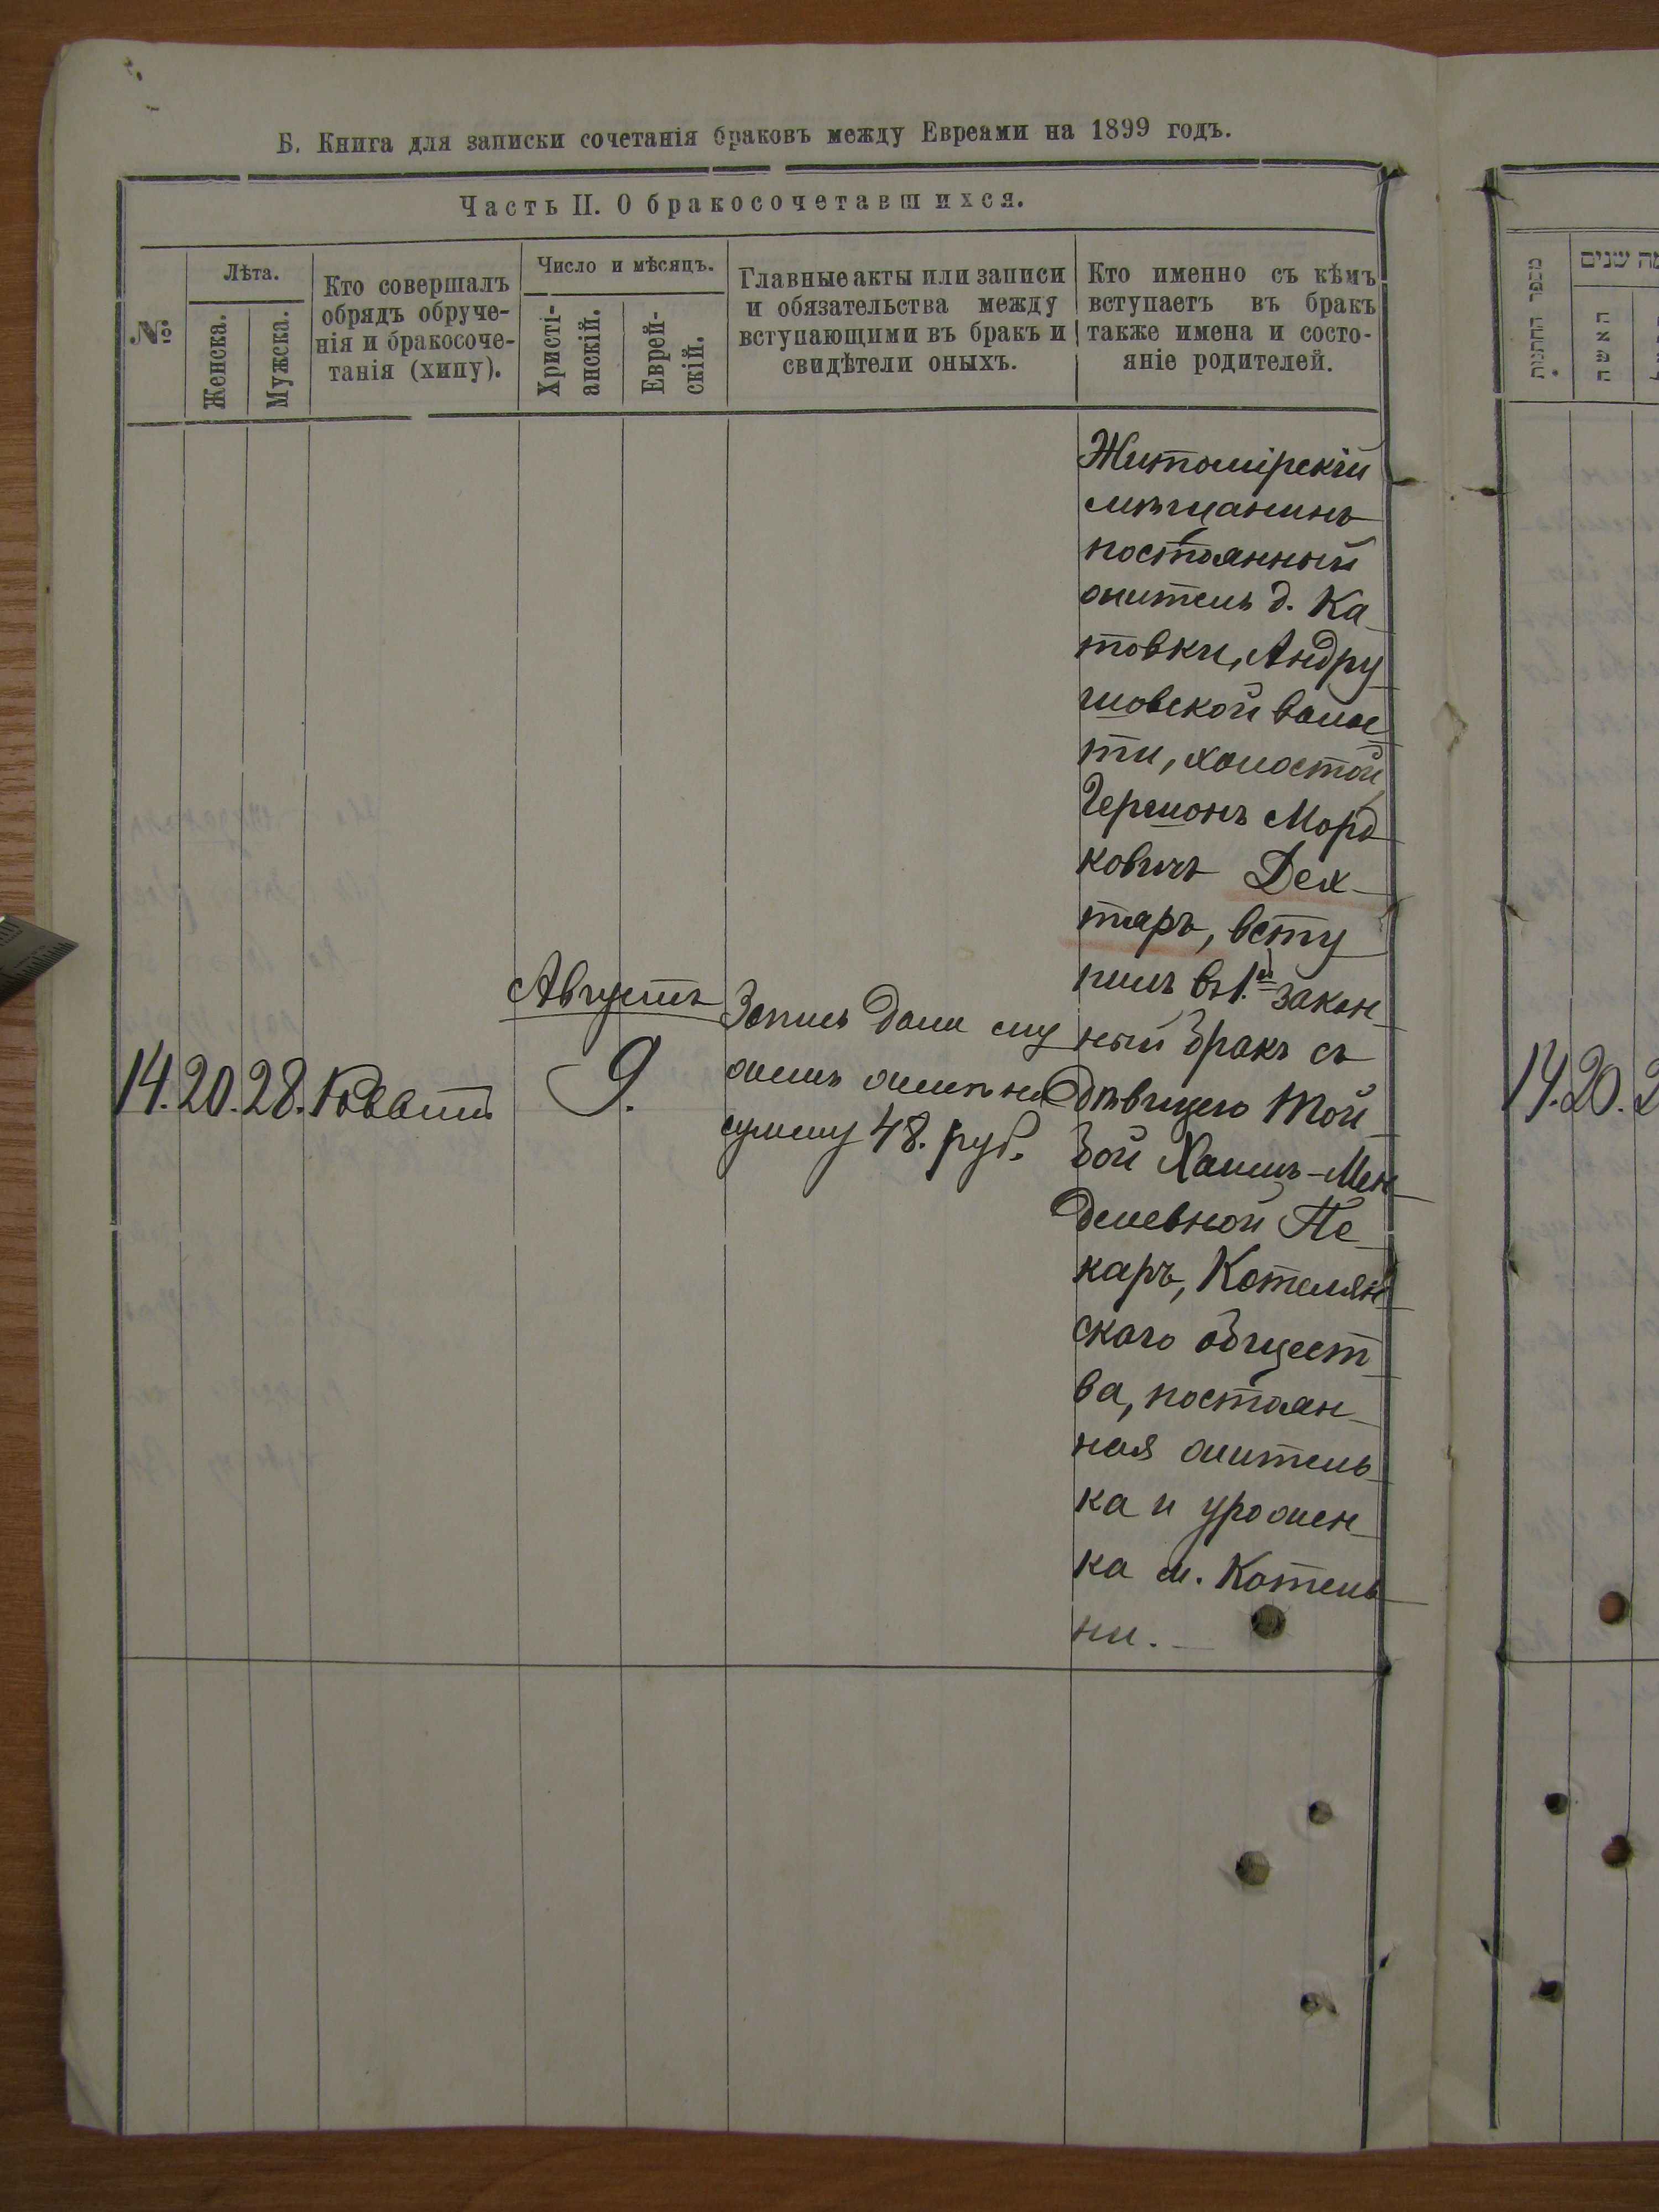 Б. Книга для записки сочетанія браковъ между Евреами на 1899 годъ.
Часть II. О бракосочетавшихся.
№
Лѣта.
Женска.
Мужска.
Кто совершалъ
обрядъ обруче-
нія и бракосоче-
танія (хипу).
Число и мѣсяцъ.
Христі-
анскій.
Еврей-
скій.
Главные акты или записи
и обязательства между
вступающими въ бракъ и
свидѣтели оныхъ.
Кто именно съ кѣмъ
вступаетъ въ бракъ
также имена и состо-
яніе родителей.
14. 20. 28.
Августъ
9.
Запись дали му
жемъ женѣ на
сумму 48. руб.
Житомірскій
мѣщанинъ
постоянный
житель д. Ка
товки, Андру
шовской волос
ти, холостой
Гершонъ Морд
ковичъ Дех-
тяръ, всту
пилъ въ 1.й закон
ный бракъ съ
дѣвицею Той
бой Хаимъ-Мен
делевной Пе
каръ, Котелян
скаго общест
ва, постоян
ная житель
ка и урожен
ка м. Котель
ни.
מספר החתנות
מה שנים
האשה
14. 20. 2